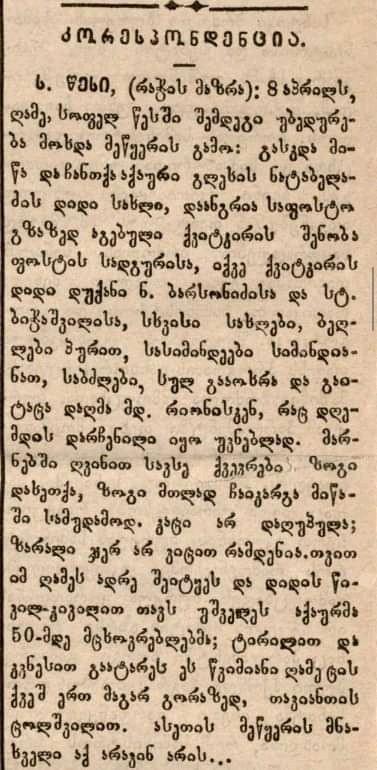 კორესპონდენცია.
ს. წესი, (რაჭის მაზრა): 8 აპრილს,
ღამე, სოფელ წესში შემდეგი უბედურე-
ბა მოხდა მეწყერის გამო: გასკდა მი-
წა და ჩანთქა აქაური გლეხის ნატაბელა-
ძის დიდი სახლი, დაანგრია საფოსტო
გზაზედ აგებული ქვიტკირის შენობა
ფოსტის სადგურისა, იქვე ქვიტკირის
დიდი დუქანი ნ. ბარსონიძისა და სტ.
ბიჭაშვილისა, სხვისი სახლები, ბეღ-
ლები პურით, სასიმინდეები სიმინდია-
ნათ, საბძლები, სულ გაოხრა და გაი-
ტაცა დაღმა მდ. რიონისკენ, რაც დღე-
მდის დარჩენილი იყო უვნებლად. მარ-
ნებში ღვინით სავსე ქვევრები ზოგი
დახეთქა, ზოგი მთლად ჩაიკარგა მიწა-
ში სამუდამოდ. კაცი არ დაღუპულა;
ზარალი ჯერ არ ვიცით რამდენია. თვით
იმ ღამეს ადრე შეიტყეს და დიდის წი-
ვილ-კივილით თავს უშველეს აქაურმა
50-მდე მცხოვრებლებმა; ტირილით და
კვნესით გაატარეს ეს წვიმიანი ღამე ცის
ქვეშ ერთ მაგარ გორაზედ, თავიანთის
ცოლშვილით. ასეთის მეწყერის მნა-
ხველი აქ არავინ არის...